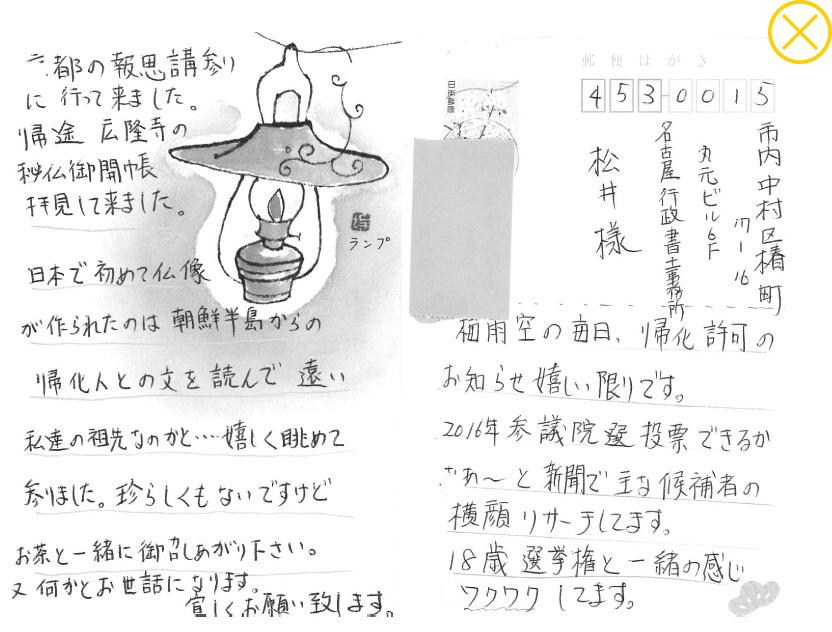 京都の報恩講参り
に行って来ました。
帰途 広隆寺の
秘仏御開帳
拝見して来ました。
ランプ
日本で初めて仏像
が作られたのは朝鮮半島からの
帰化人との文を読んで 遠い
私達の祖先なのかと‥‥嬉しく眺めて
参りました。珍らしくもないですけど
お茶と一緒に御召しあがり下さい。
又 何かとお世話になります。
宜しくお願い致します。
郵便はがき
日本郵便
453-0015
市内中村区椿町
17-16
丸元ビル6F
名古屋行政書士事務所
松井様
梅雨空の毎日、帰化許可の
お知らせ嬉しい限りです。
2016年参議院選投票できるか
なあ〜と新聞で主な候補者の
横顔リサーチしてます。
18歳選挙権と一緒の感じ
ワクワクしてます。